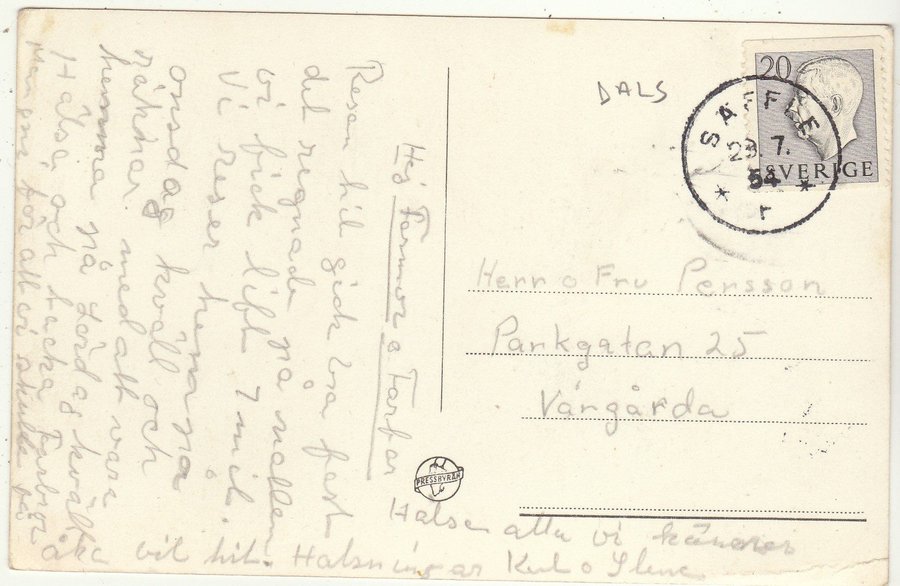 Hej Farmor o Farfar
Resan hit gick bra fast
det regnade på natten
vi fick lift 7 mil.
Vi reser hem på
onsdag kväll och
räknar med att vara
hemma på Lördag kväll
Hälsa och tacka Farbror
för att vi skulle få
åk bil hit. Hälsningar Kent o
Hälsa alla vi känner
DALS
20
SVERIGE
SÄFFLE
29. 7.
54
r
Herr o Fru Persson
Parkgatan 25
Vårgårda
PRESSBYRÅN